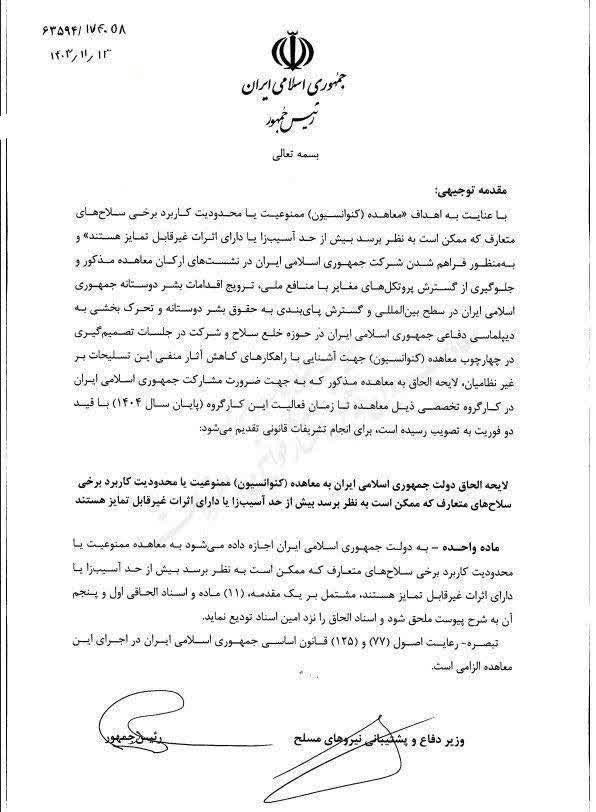 ۶۳۵۹۴/۱۷۴۰۵۸
۱۴۰۳/۱۱/۱۳
جمهوری اسلامی ایران
رئیس جمهور
بسمه تعالی
مقدمه توجیهی:
با عنایت به اهداف «معاهده (کنوانسیون) ممنوعیت یا محدودیت کاربرد برخی سلاح‌های
متعارف که ممکن است به نظر برسد بیش از حد آسیب‌زا یا دارای اثرات غیرقابل تمایز هستند» و
به‌منظور فراهم شدن شرکت جمهوری اسلامی ایران در نشست‌های ارکان معاهده مذکور و
جلوگیری از گسترش پروتکل‌های مغایر با منافع ملی، ترویج اقدامات بشر دوستانه جمهوری
اسلامی ایران در سطح بین‌المللی و گسترش پای‌بندی به حقوق بشر دوستانه و تحرک بخشی به
دیپلماسی دفاعی جمهوری اسلامی ایران در حوزه خلع سلاح و شرکت در جلسات تصمیم‌گیری
در چهارچوب معاهده (کنوانسیون) جهت آشنایی با راهکارهای کاهش آثار منفی این تسلیحات بر
غیر نظامیان، لایحه الحاق به معاهده مذکور که به جهت ضرورت مشارکت جمهوری اسلامی ایران
در کارگروه تخصصی ذیل معاهده تا زمان فعالیت این کارگروه (پایان سال ۱۴۰۴) با قید
دو فوریت به تصویب رسیده است، برای انجام تشریفات قانونی تقدیم می‌شود:
لایحه الحاق دولت جمهوری اسلامی ایران به معاهده (کنوانسیون) ممنوعیت یا محدودیت کاربرد برخی
سلاح‌های متعارف که ممکن است به نظر برسد بیش از حد آسیب‌زا یا دارای اثرات غیرقابل تمایز هستند
ماده واحده – به دولت جمهوری اسلامی ایران اجازه داده می‌شود به معاهده ممنوعیت یا
محدودیت کاربرد برخی سلاح‌های متعارف که ممکن است به نظر برسد بیش از حد آسیب‌زا یا
دارای اثرات غیرقابل تمایز هستند، مشتمل بر یک مقدمه، (۱۱) ماده و اسناد الحاقی اول و پنجم
آن به شرح پیوست ملحق شود و اسناد الحاق را نزد امین اسناد تودیع نماید.
تبصره- رعایت اصول (۷۷) و (۱۲۵) قانون اساسی جمهوری اسلامی ایران در اجرای این
معاهده الزامی است.
وزیر دفاع و پشتیبانی نیروهای مسلح
رئیس جمهور